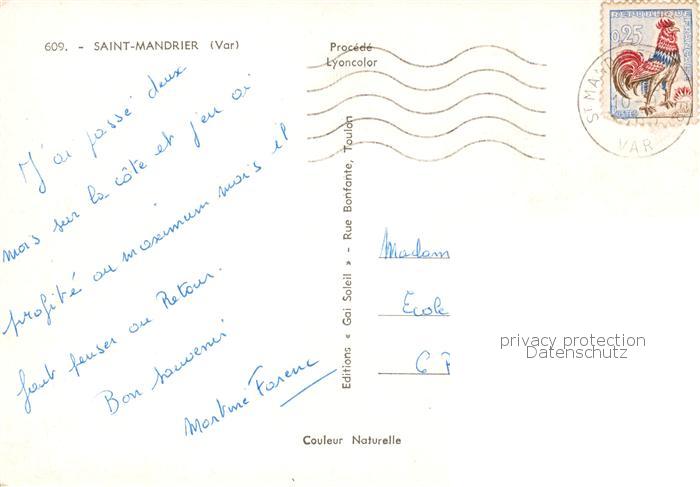 609. - SAINT-MANDRIER (Var)
Procédé
Lyoncolor
REPUBLIQUE FRANÇAISE
0,25
POSTES
St MAND
VAR
J'ai passé deux
mois sur la côte et j'en ai
profité au maximum mais il
faut penser au Retour.
Bon souvenir
Martine
Editions « Gai Soleil » - Rue Bonfante, Toulon
Madam
Ecole
privacy protection
Datenschutz
Couleur Naturelle